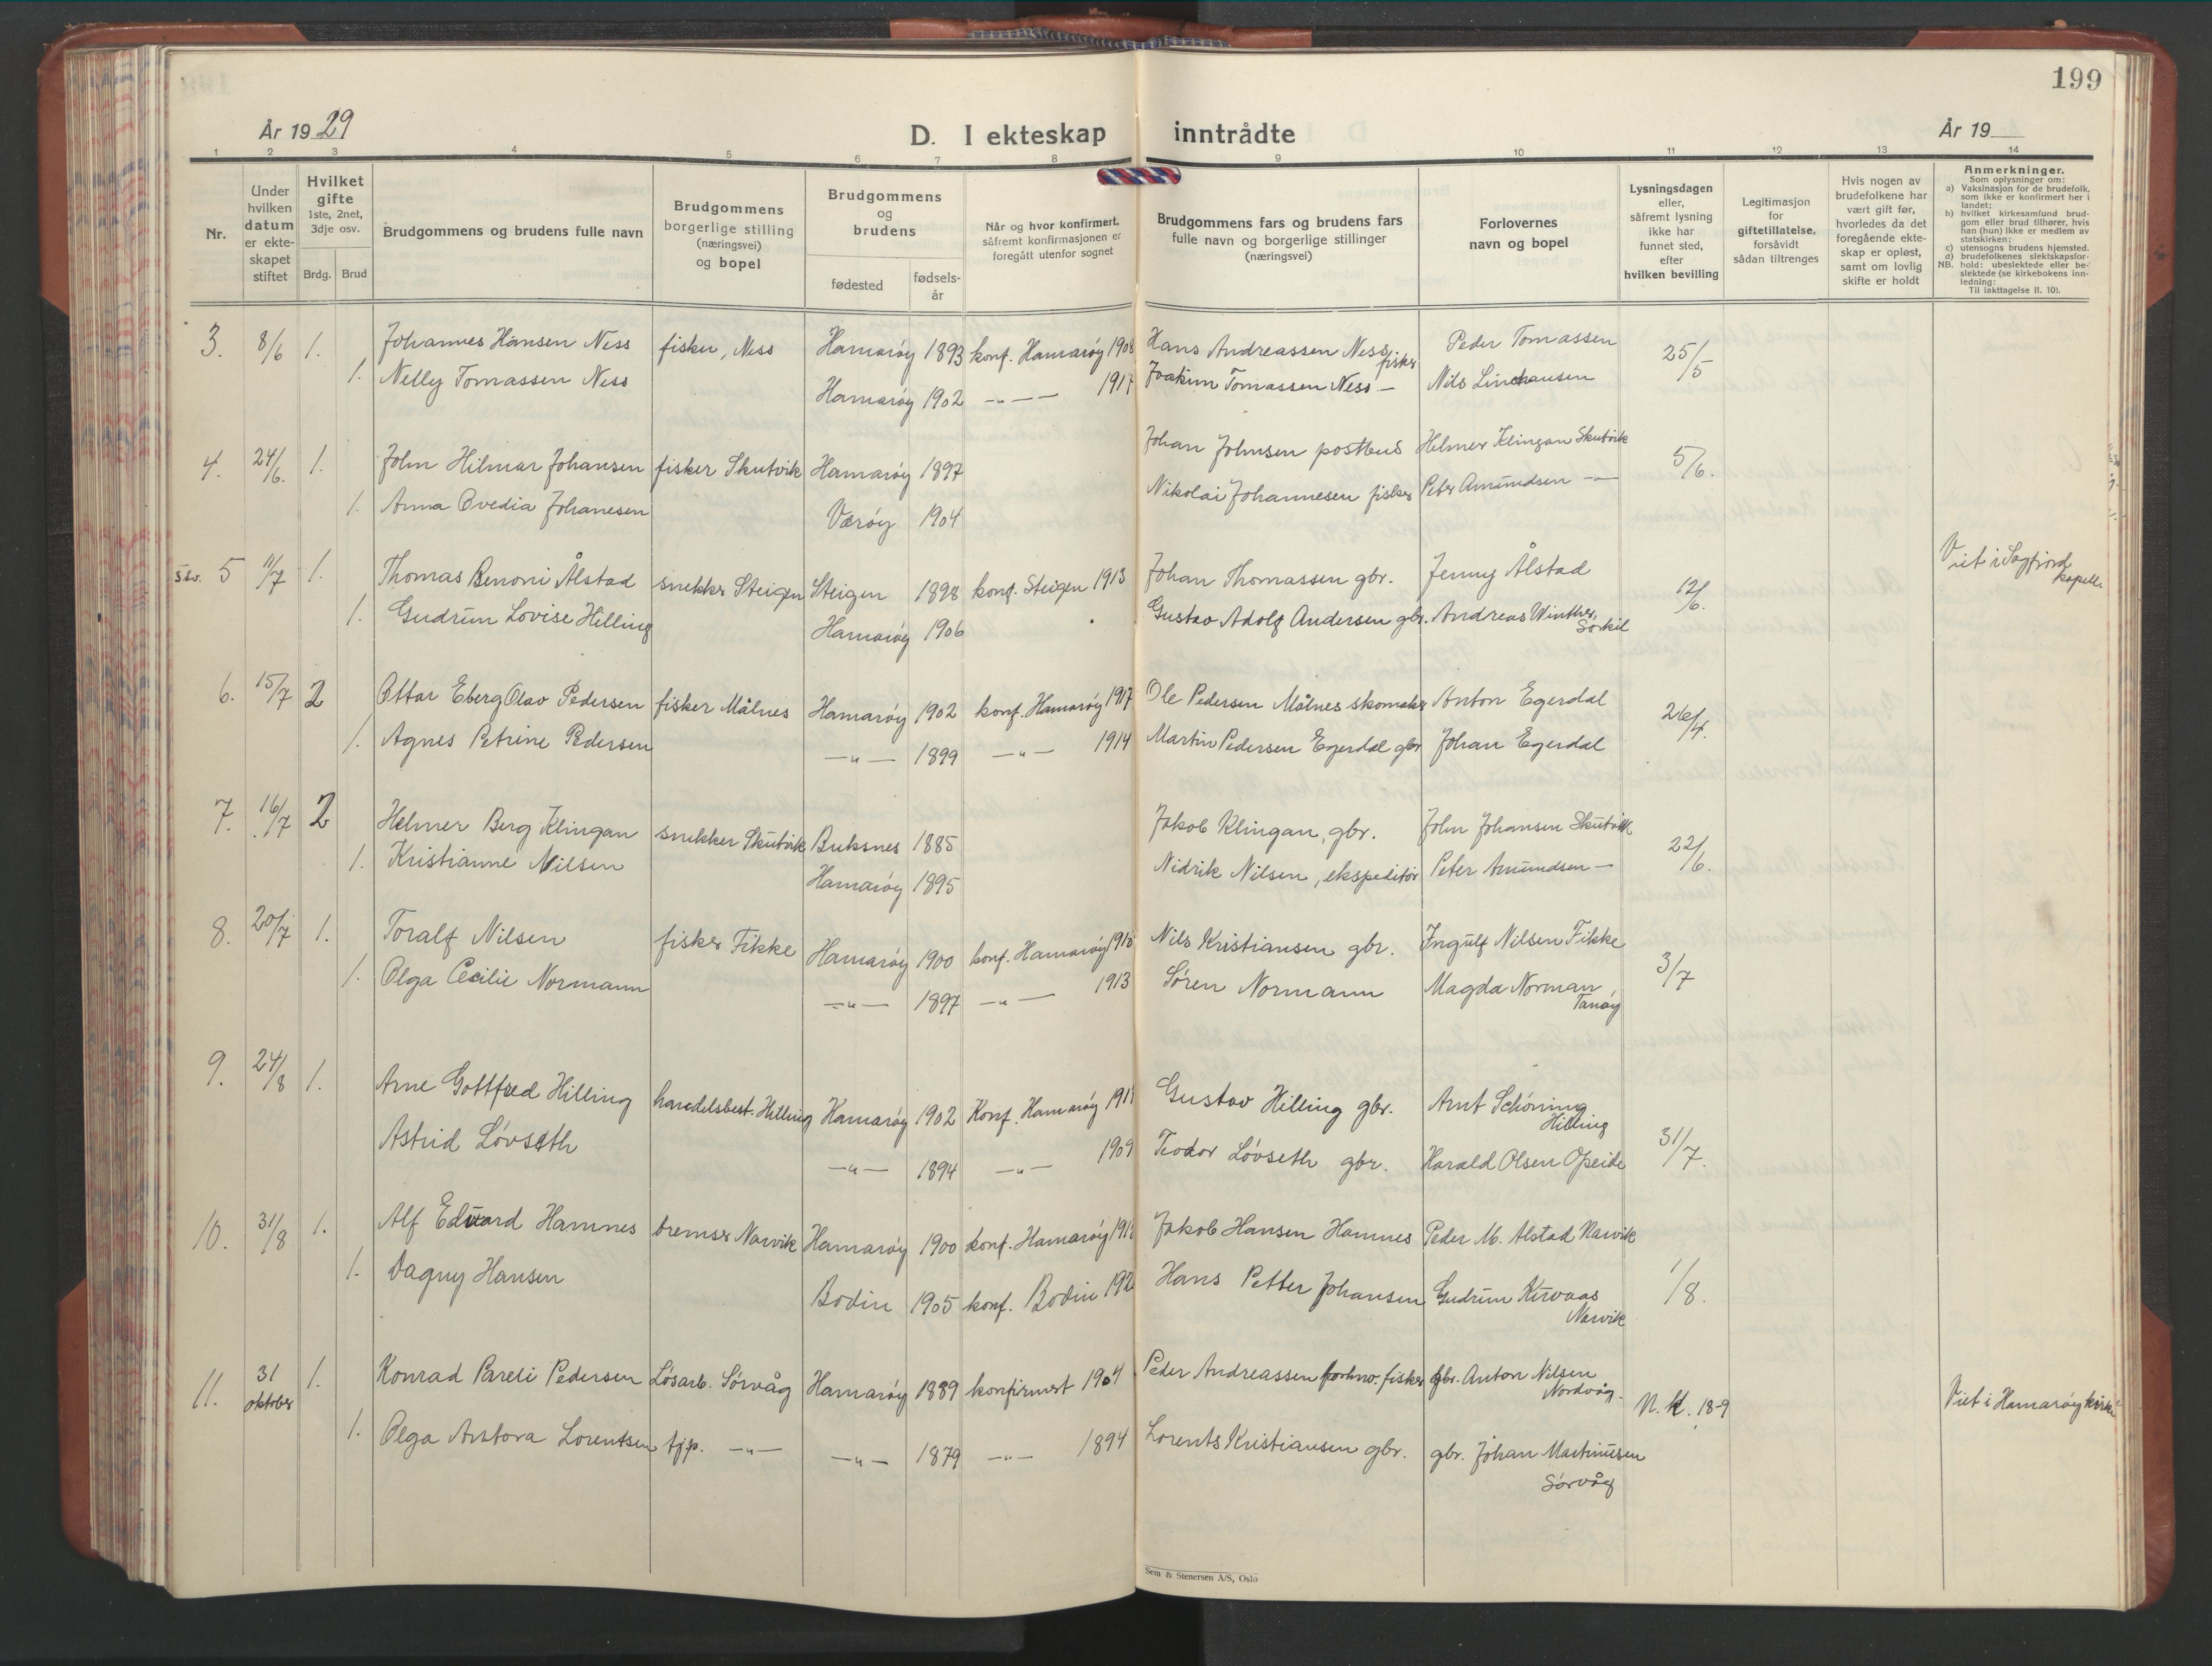 199
År 1929
D. I ekteskap inntrådte
År 19
1 2 3 4 5 6 7 8 9 10 11 12 13 14
Nr.
Under hvilken datum er ekte-skapet stiftet
Hvilket gifte
1ste, 2net, 3dje osv.
Brdg. Brud
Brudgommens og brudens fulle navn
Brudgommens borgerlige stilling (næringsvei) og bopel
Brudgommens og brudens
fødested
fødsels-år
Når og hvor konfirmert, såfremt konfirmasjonen er foregått utenfor sognet
Brudgommens fars og brudens fars fulle navn og borgerlige stillinger (næringsvei)
Forlovernes navn og bopel
Lysningsdagen eller, såfremt lysning ikke har funnet sted, efter hvilken bevilling
Legitimasjon for giftetillatelse, forsåvidt sådan tiltrenges
Hvis nogen av brudefolkene har vært gift før, hvorledes da det foregående ekte-skap er opløst, samt om lovlig skifte er holdt
Anmerkninger.
Som oplysninger om:
a) Vaksinasjon for de brudefolk, som ikke er konfirmert her i landet;
b) hvilket kirkesamfund brud-gom eller brud tilhører, hvis han (hun) ikke er medlem av statskirken;
c) utensogns brudens hjemsted.
d) brudefolkenes slektskapsfor-
NB. hold: ubeslektede eller be-slektede (se kirkebokens inn-ledning:
Til iakttagelse II. 10).
3. 8/6 1. Johannes Hansen Ness fisker, Ness Hamarøy 1893 konf. Hamarøy 1908 Hans Andreassen Ness fisker Peder Tomassen 25/5
1. Nelly Tomassen Ness Hamarøy 1902 —"— 1917 Joakim Tomassen Ness — Nils Linchausen
4. 24/6. 1. John Hilmar Johansen fisker Skutvik Hamarøy 1897 Johan Johnsen postbud Helmer Klingan Skutvik 5/6.
1. Anna Ovedia Johanesen Værøy 1904 Nikolai Johannesen fisker Peter Amundsen —"—
5 11/7 1. Thomas Benoni Ålstad snekker Steigen Steigen 1898 konf. Steigen 1913 Johan Thomassen gbr. Jenny Ålstad 12/6. Viet i Sagfjord kapell
1. Gudrun Lovise Hilling Hamarøy 1906 Gustav Adolf Andersen gbr. Andreas Winther, Sørkil
6. 15/7 2 Ottar Eberg Olav Pedersen fisker Målnes Hamarøy 1902 konf. Hamarøy 1917 Ole Pedersen Målnes skomaker Anton Egerdal 26/4.
1. Agnes Petrine Pedersen —"— 1899 —"— 1914 Martin Pedersen Egerdal gbr Johan Egerdal
7. 16/7 2 Helmer Berg Klingan snekker Skutvik Buksnes 1885 Jakob Klingan, gbr. John Johansen Skutvik 22/6.
1. Kristianne Nilsen Hamarøy 1895 Nidrik Nilsen, ekspeditør Peter Amundsen —
8. 20/7 1. Toralf Nilsen fisker Fikke Hamarøy 1900 konf. Hamarøy Nils Kristiansen gbr. Ingulf Nilsen Fikke 3/7
1. Olga Cecilie Normann —"— 1897 —"— 1913 Søren Normann Magda Norman, Tanøy
9. 24/8 1. Arne Gottfred Hilling handelsbest. Hilling Hamarøy 1902 Konf. Hamarøy Gustav Hilling gbr. Arnt Schöning Hilling 31/7.
Astrid Løvseth —"— 1894 —"— 1909 Teodor Løvseth gbr. Harald Olsen Opeide
10. 31/8 1. Alf Edvard Hamnes bremser Narvik Hamarøy 1900 konf. Hamarøy Jakob Hansen Hamnes Peder M. Alstad Narvik 1/8.
1. Dagny Hansen Bodin 1905 konf. Bodin Hans Petter Johansen Gudrun Kirvaas Narvik
11. 31 oktober 1. Konrad Pareli Pedersen Løsarb. Sørvåg Hamarøy 1889 konfirmert 1904 Peder Andreassen forhnv. fisker gbr. Anton Nilsen Nordvåg. N. K. 18-9 Viet i Hamarøy kirke
1. Olga Arstora Lorentsen tjp. —"— —"— 1879 —"— 1894 Lorents Kristiansen gbr. gbr. Johan Martinusen Sørvåg
Sem & Stenersen A/S, Oslo